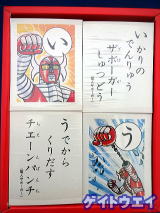 い
いかりの
でんりゅう
ザボーガー
しゅつどう
うでから
くりだす
チェーンパンチ
う
ゲイトウエイ